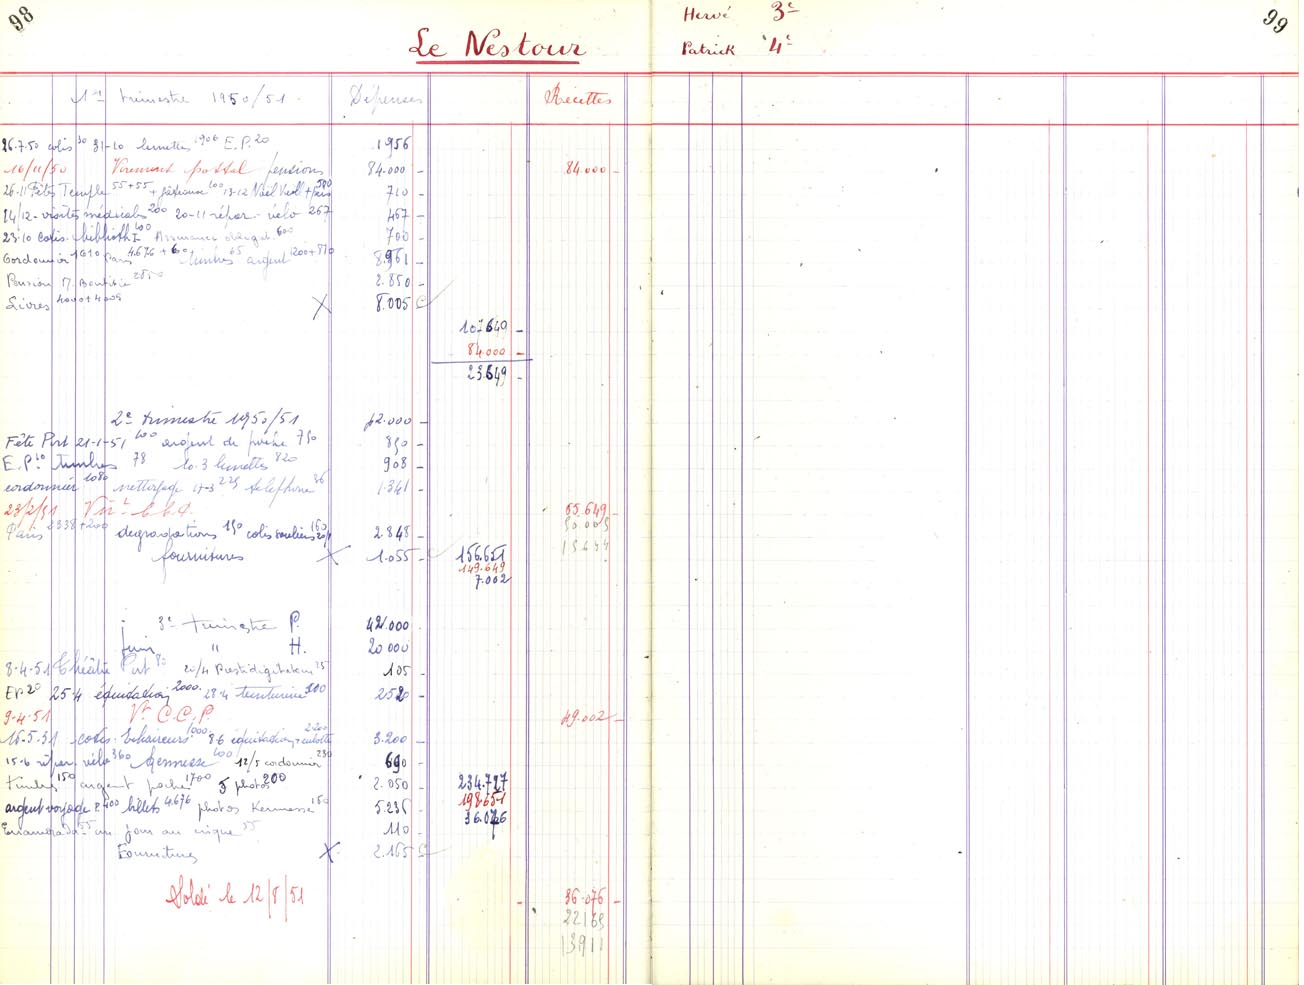 98
Le Nestour
Hervé 3e
Patrick 4e
99
trimestre 1950/51 Dépenses Recettes
26.7.50 colis 30 31-10 lunettes 1906 E.P. 20 1956
16/11/50 Virement postal pensions 84.000 - 84.000 -
26-11 Fêtes Temple 55+55 + 100 13-12 Noël 500 710 -
14/12 - visites médicales 200 20-11 répar. vélo 267 467 -
23.10 cotis. biblioth 100 Assurance obligat. 600 700 -
Cordonnier 1610 Paris 4.676 + 60 timbres 65 argent 1200+ 8.961 -
Pension M. 2850 2.850 -
Livres 4000+4005 X 8.005
107649 -
84.000 -
23649 -
2e trimestre 1950/51 42.000 -
Fête Port 21-1-51 100 argent de poche 750 850 -
E.P. 10 timbres 78 10.3 lunettes 820 908 -
cordonnier 1080 nettoyage 225 téléphone 36 1.341 -
23/2/51 65.649 -
50.005
Paris 2338+200 dégradations 150 colis souliers 160 2.848 -
15644
fournitures X 1.055 - 156.651
149.649
7.002
3e trimestre P. 42.000 -
juin " H. 20 000 -
8-4-51 Théâtre Port 80 20/4 Prestidigitateur 25 105 -
EP. 20 25-4 équitation 2000. 28-4 500
9-4-51 Vt C.C.P. 49.002 -
16-5-51 cotis. 1000 8-6 équitation + culotte 2200 3.200 -
15-6 répar. vélo 360 Kermesse 100 12/5 cordonnier 230 690 -
timbres 150 argent poche 1700 5 photos 200 2.050 - 234.727
198651
argent voyage 2400 billets 4.676 photos Kermesse 150 5.235 - 36.076
55 un jour au cirque 55 110 -
Fournitures X 2.165
Soldé le 12/8/51 - 36.076 -
22165
13911